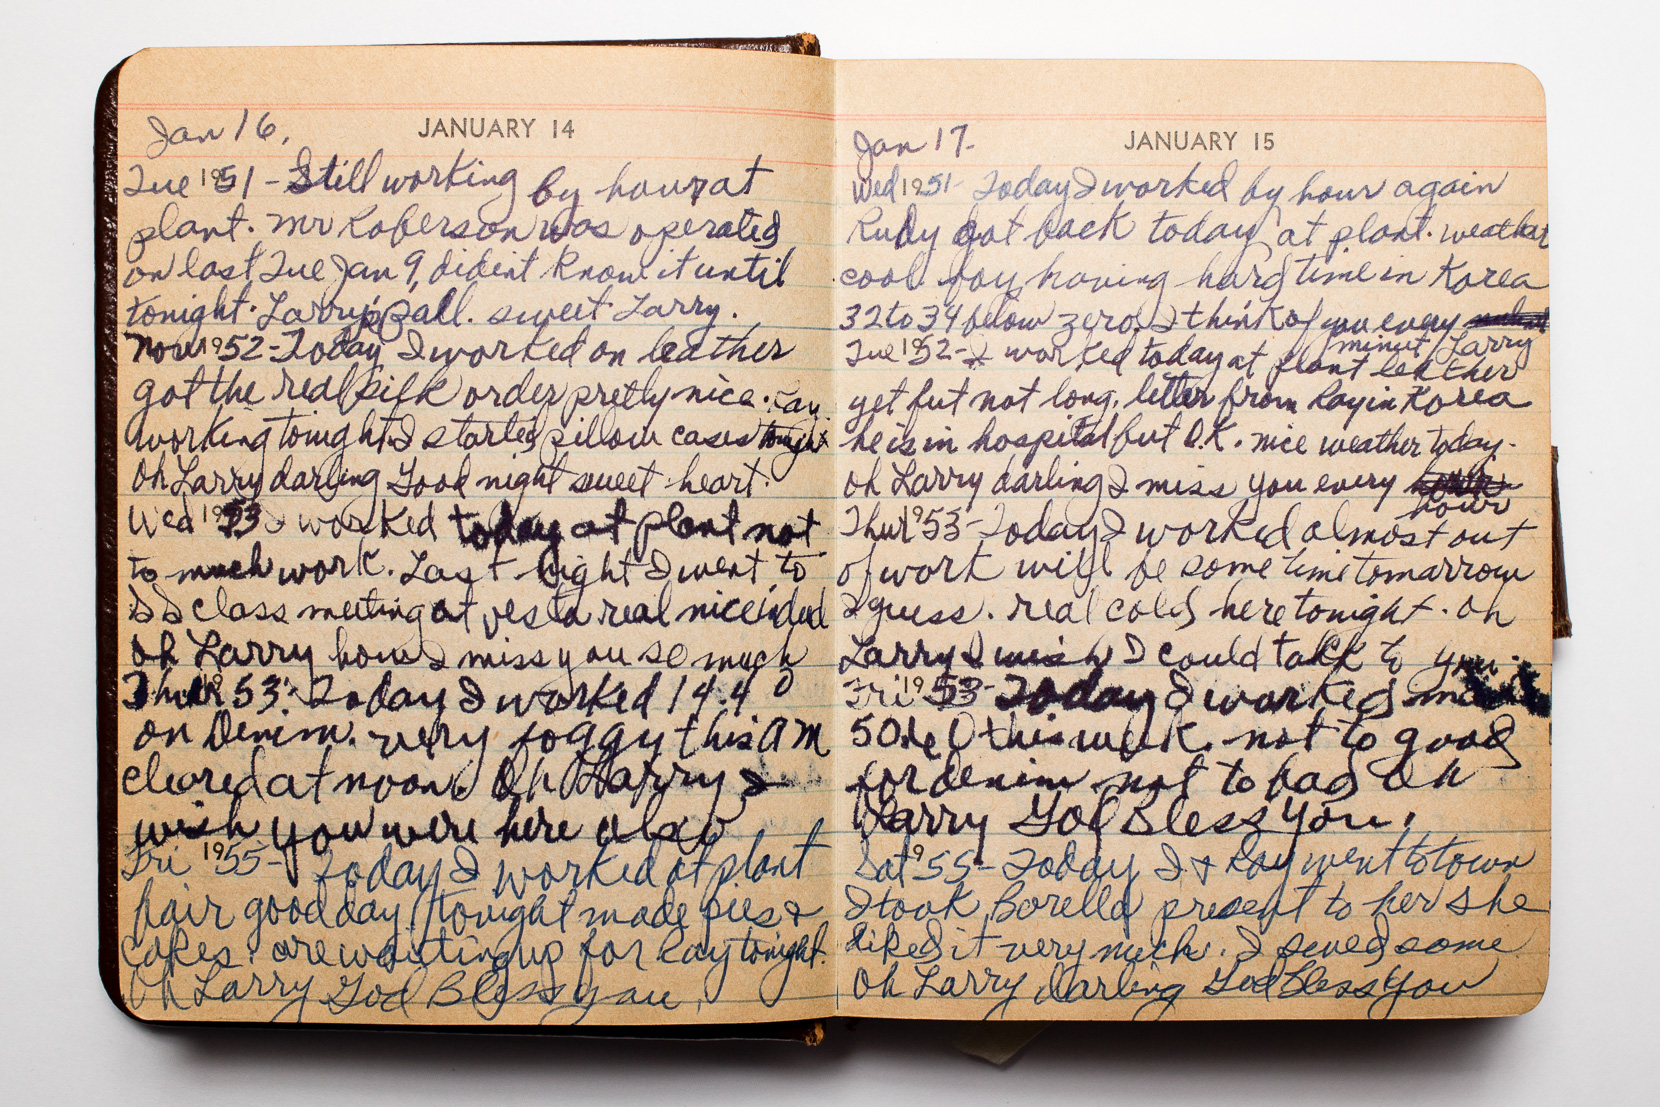 Jan 16.
JANUARY 14
Tue 1951 - Still working by hour at
plant. Mr Roberson was operated
on last Tue Jan 9, dident know it until
tonight. Larry's pall. sweet Larry.
1952 - Today I worked on leather
got the real silk order pretty nice. Ray
working tonight. I started pillow cases tonight
Oh Larry darling Good night sweet heart.
Wed 1953 I worked today at plant not
to much work. Last night I went to
SS class meeting at Vesta real nice inded
Oh Larry how I miss you so much
Thur 53: Today I worked 14.40
on Denim. very foggy this AM
cleared at noon. Oh Larry I
wish you were here also
Fri 1955 - Today I worked at plant
fair good day, tonight made pies &
cakes. are waiting up for Ray tonight.
Oh Larry God Bless you.
Jan 17.
JANUARY 15
Wed 1951 - Today I worked by hour again
Rudy got back today at plant. weather
cool. boy having hard time in Korea
32 to 34 below zero. I think of you every
minut Larry
Tue 1952 - I worked today at plant leather
yet but not long. letter from Ray in Korea
he is in hospital but O.K. nice weather today.
Oh Larry darling I miss you every
hour
Thur 1953 - Today I worked almost out
of work will be some time tomarrow
I guess. real cold here tonight. Oh
Larry I wish I could talk to you.
Fri 1953 - Today I worked made
this week. not to good
for denim not to bad Oh
Larry God Bless You.
Sat 955 - Today I & Ray went to town
I took Borella present to her she
liked it very much. I sewed some
Oh Larry darling God Bless You